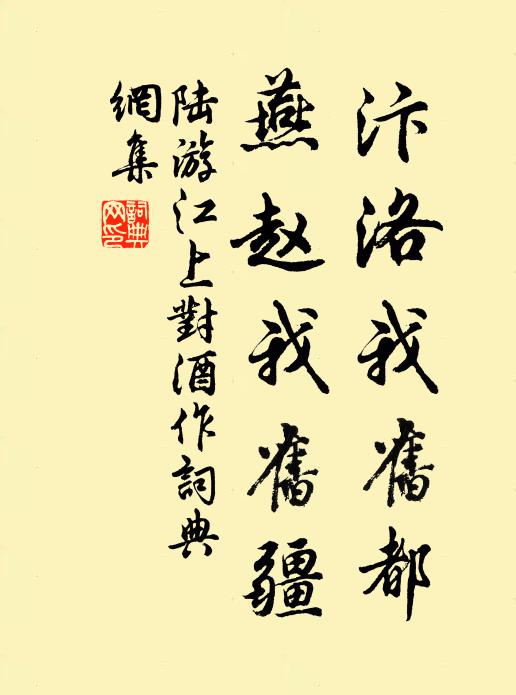 汴洛我舊都
燕赵我舊疆
陆游江上對酒作詞典
網集
詞典
网印